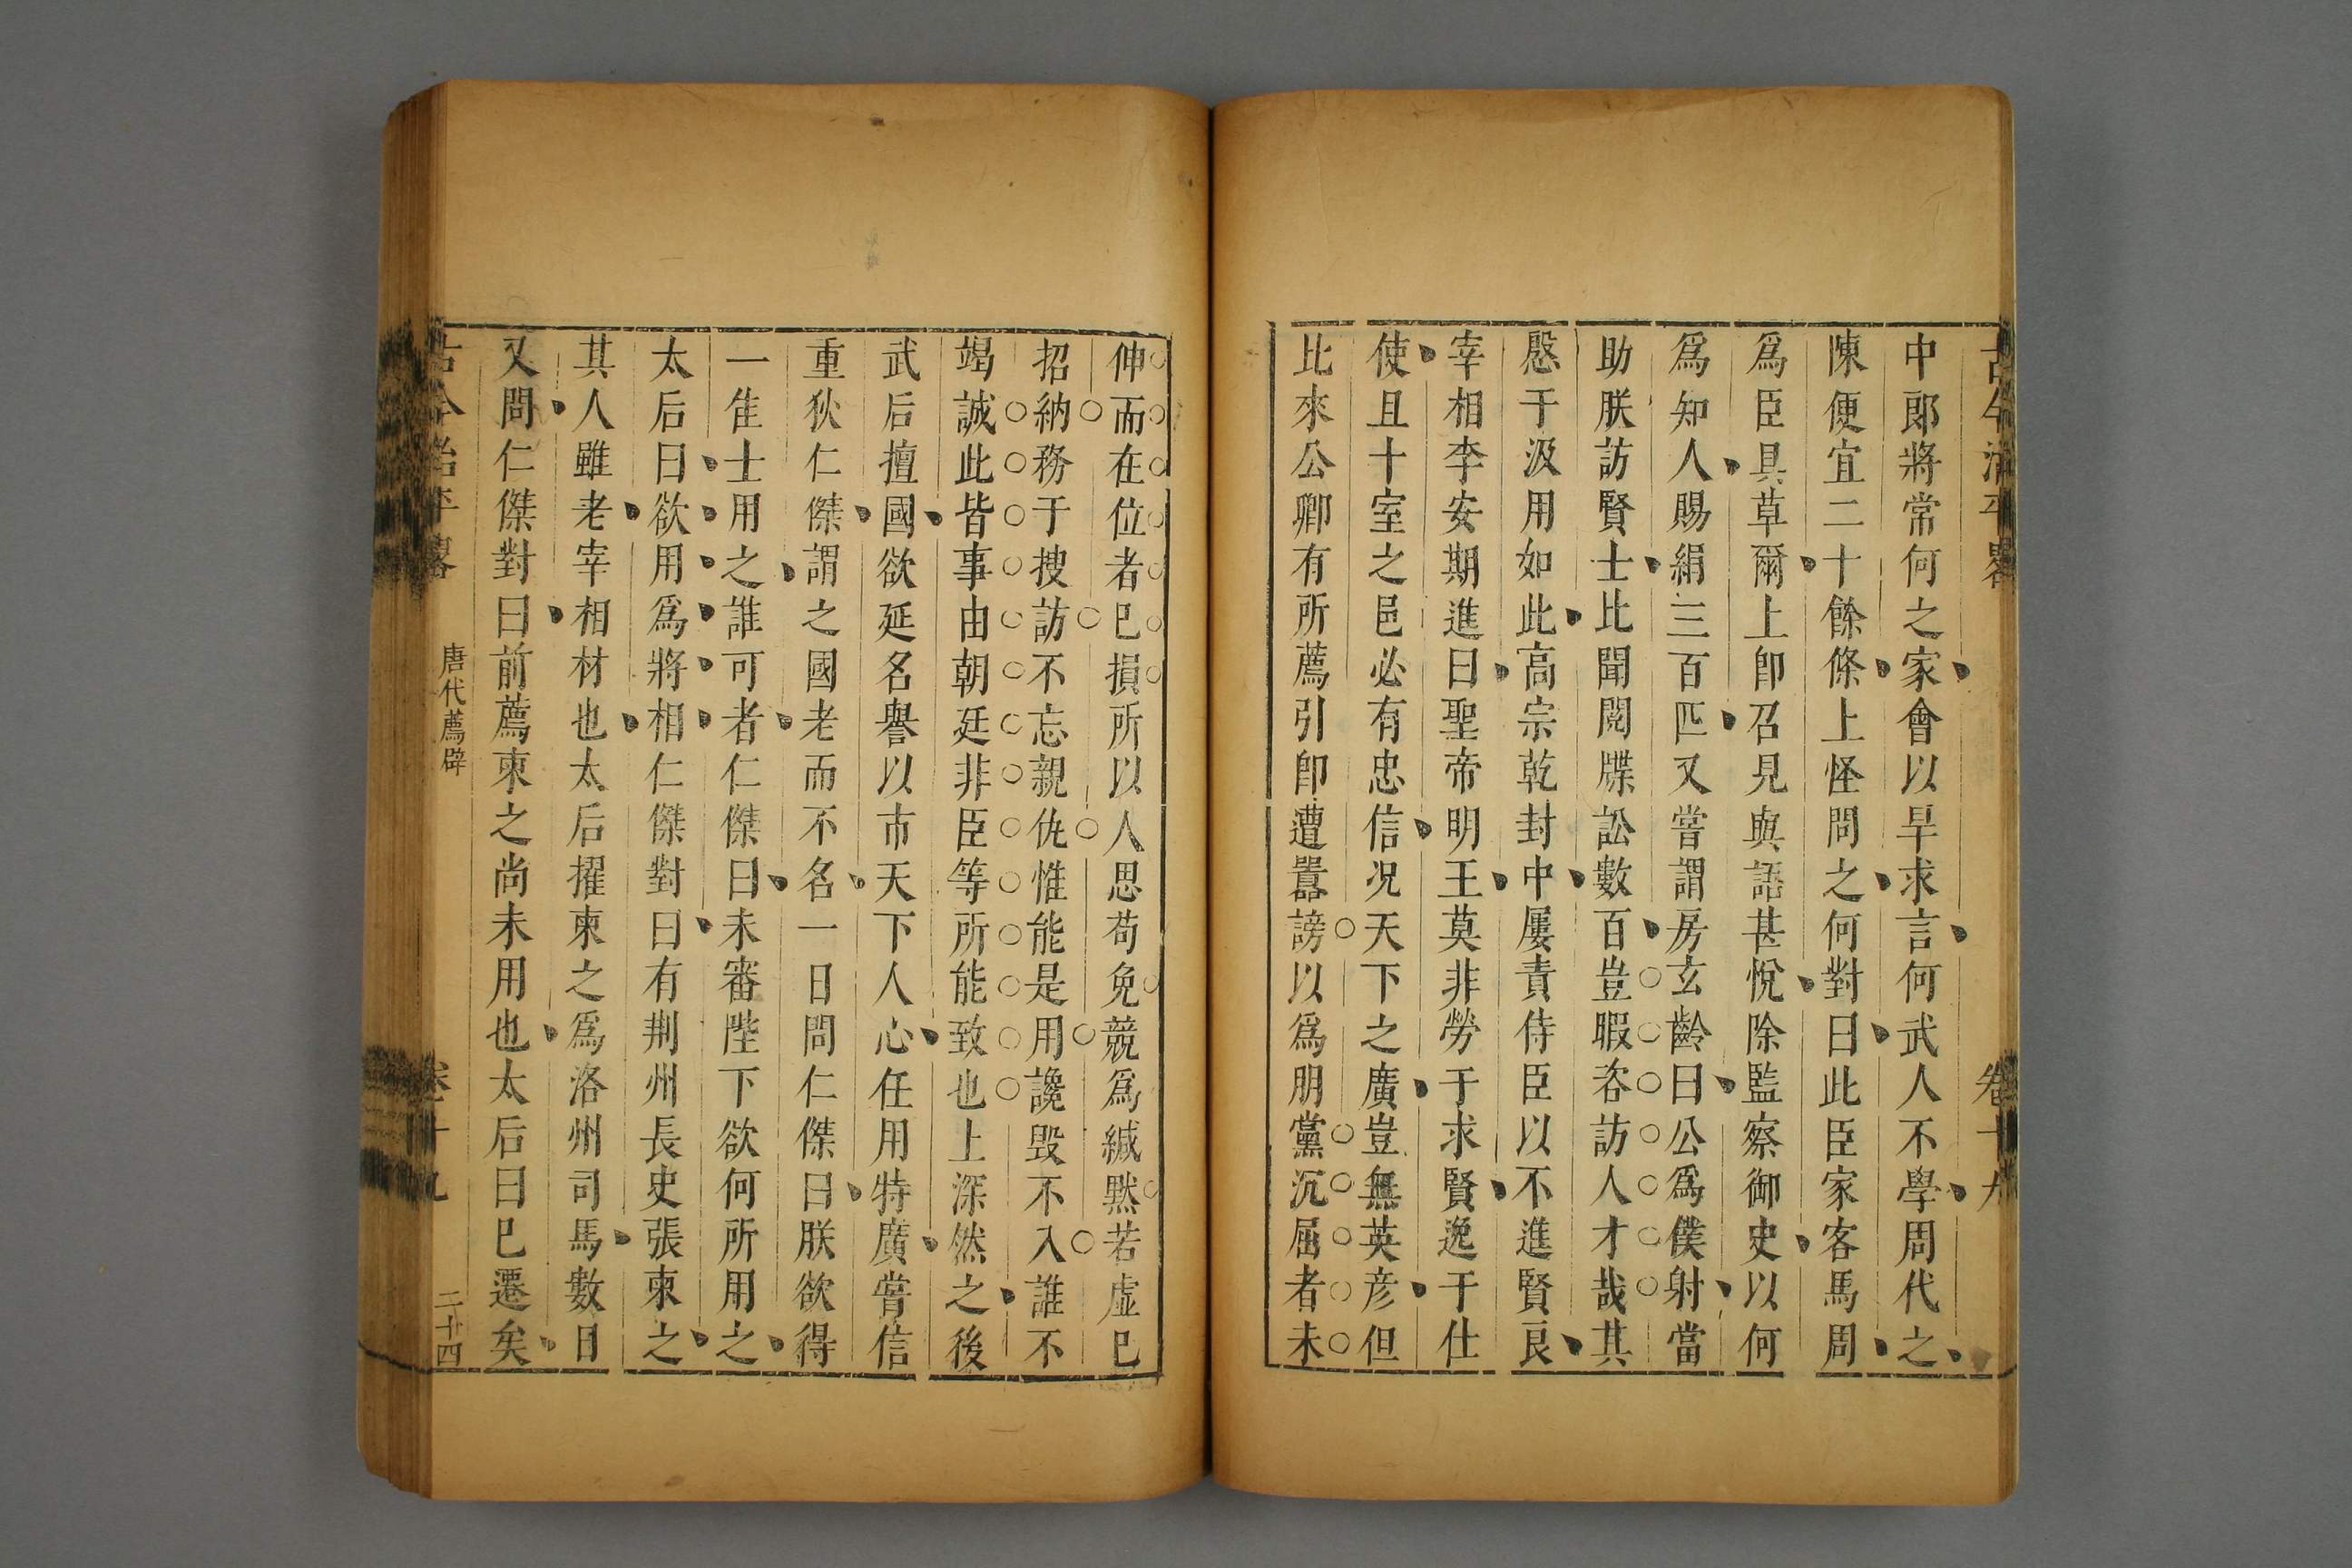 古今治平畧
卷十九
中郎將常何之家會以旱求言何武人不學周代之
陳便宜二十餘條上怪問之何對曰此臣家客馬周
爲臣具草爾上卽召見與語甚悅除監察御史以何
爲知人賜絹三百匹又嘗謂房玄齡曰公爲僕射當
助朕訪賢士比聞閱牒訟數百豈暇咨訪人才哉其
慇于汲用如此高宗乾封中屢責侍臣以不進賢良
宰相李安期進曰聖帝明王莫非勞于求賢逸于仕
使且十室之邑必有忠信况天下之廣豈無英彥但
比來公卿有所薦引卽遭囂謗以爲朋黨沉屈者未
伸而在位者已損所以人思苟免競爲緘默若虛已
招納務于搜訪不忘親仇惟能是用讒毁不入誰不
竭誠此皆事由朝廷非臣等所能致也上深然之後
武后擅國欲延名譽以市天下人心任用特廣嘗信
重狄仁傑謂之國老而不名一日問仁傑曰朕欲得
一隹士用之誰可者仁傑曰未審陛下欲何所用之
太后曰欲用爲將相仁傑對曰有荆州長史張柬之
其人雖老宰相材也太后擢柬之爲洛州司馬數日
又問仁傑對曰前薦柬之尚未用也太后曰已遷矣
古今治平畧
唐代薦辟
卷十九
二十四